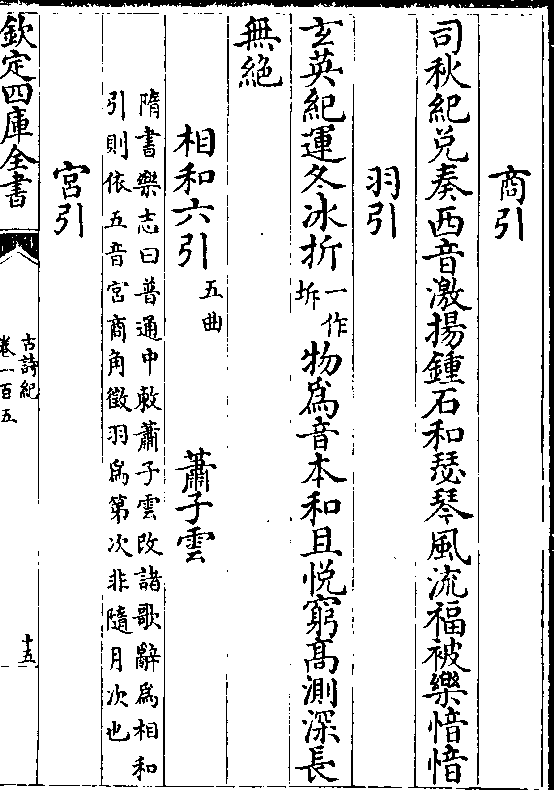 商引
司秋紀兌奏西音激揚鍾石和瑟琴風流福被樂愔愔
羽引
玄英紀運冬冰折一作坼物爲音本和且悅窮髙測深長
無絶
相和六引五曲 蕭子雲
隋書樂志曰普通中敕蕭子雲改諸歌辭爲相和
引則依五音宮商角徵羽爲第次非隨月次也
宮引
欽定四庫全書
古詩紀
卷一百五
十五